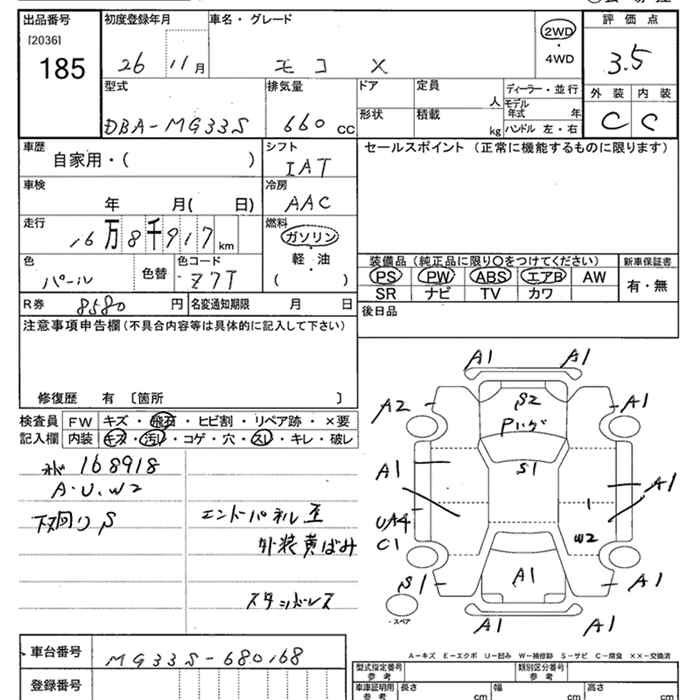 出品番号
[2036]
185
初度登録年月
26 11月
車名・グレード
モコ X
2WD
・
4WD
評価点
3.5
外装 内装
C C
型式
DBA-MG33S
排気量
660 CC
ドア
形状
定員
人
積載
kg
ディーラー・並行
モデル年式 年
ハンドル 左・右
車歴
自家用・( )
シフト
IAT
車検
年 月( 日)
冷房
AAC
走行
16万8千917km
燃料
ガソリン
・
軽・油
( )
色
パール
色替
色コード
Z7T
R券 8580 円
名変通知期限 月 日
セールスポイント (正常に機能するものに限ります)
装備品 (純正品に限り〇をつけてください)
新車保証書
PS PW ABS エアB AW
SR ナビ TV カワ
有・無
後日品
注意事項申告欄 (不具合内容等は具体的に記入して下さい)
修復歴 有 〔箇所 〕
検査員記入欄
FW キズ・飛石・ヒビ割・リペア跡・×要
内装 キズ・汚れ・コゲ・穴・スレ・キレ・破レ
168918
A・U、W2
下廻りS
エンドパネル至
外装黄ばみ
スタッドレス
A1 A1
A2 S2 A1
Pハゲ
S1
A1 A1
UA4 W2
C1
S1 A1 A1
A1 A1
・スペア
A－キズ E－エクボ U－凹み W－補修跡 S－サビ C－腐食 ××－交換済
車台番号 MG33S-680168
登録番号
型式指定番号 参考
類別区分番号 参考
車庫証明用 参考
長さ cm
幅 cm
高さ cm